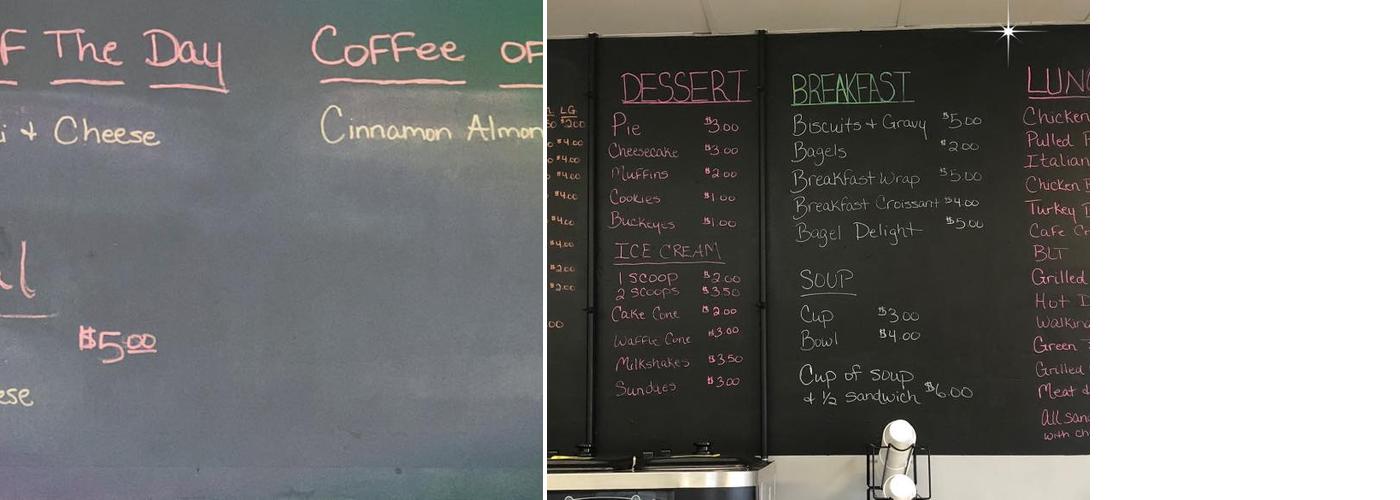 F The Day
i + Cheese
al
$5.00
ese
Coffee OF
Cinnamon Almon
LG
$2.00
$4.00
$4.00
$4.00
$4.00
$4.00
$4.00
$2.00
$2.00
DESSERT
Pie $3.00
Cheesecake $3.00
Muffins $2.00
Cookies $1.00
Buckeyes $1.00
ICE CREAM
1 SCOOP $2.00
2 SCOOPS $3.50
Cake Cone $2.00
Waffle Cone $3.00
Milkshakes $3.50
Sundaes $3.00
BREAKFAST
Biscuits + Gravy $5.00
Bagels $2.00
Breakfast Wrap $5.00
Breakfast Croissant $4.00
Bagel Delight $5.00
SOUP
Cup $3.00
Bowl $4.00
Cup of soup
+ 1/2 sandwich $6.00
LUNC
Chicken
Pulled P
Italian
Chicken
Turkey
Cafe Cr
BLT
Grilled
Hot D
Walking
Green
Grilled
Meat
All san
with ch